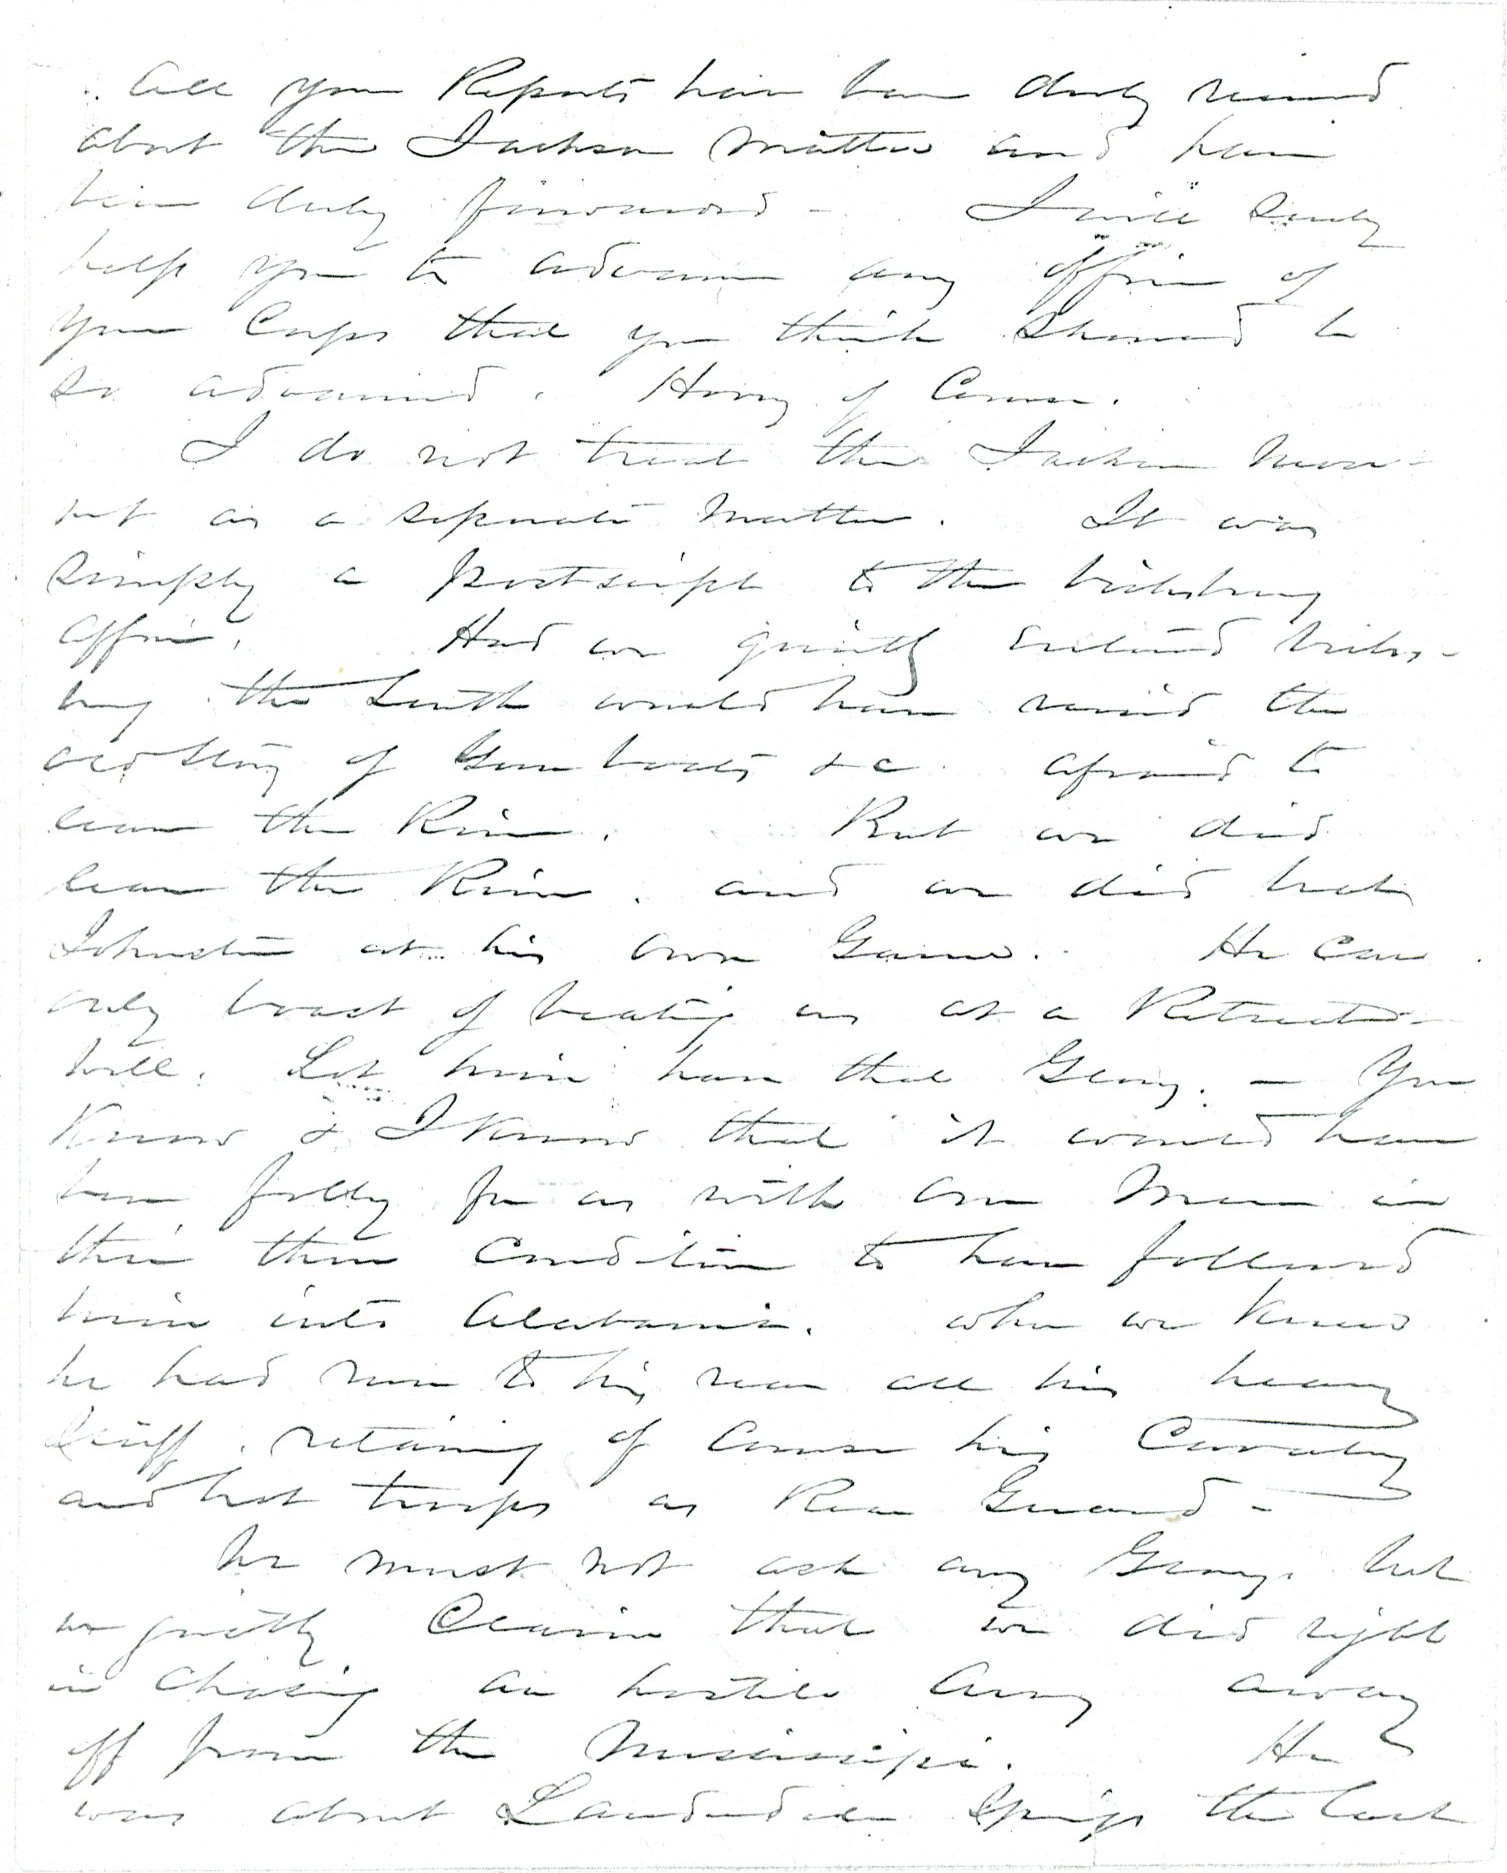 All your Reports have been duly received
about the Jackson matter and have
been duly forwarded - I will surely
help you to advance any officer of
your Corps that you think should be
so advanced. Hovey of course.
I do not treat the Jackson move-
ment as a separate matter. It was
simply a postscript to the Vicksburg
affair. Had we quietly entered Vicks-
burg the South would have raised the
old story of Gun boats &c. afraid to
leave the River. But we did
leave the River. and we did beat
Johnston at his own Game. He can
only boast of beating us at a Retreat-
Well. Let him have that Glory. - You
Know & I Know that it would have
been folly for us with our Men in
their then Condition to have followed
him into Alabama. when we Knew
he had run to his rear all his heavy
Stuff, retaining of course his Cavalry
and best troops as Rear Guard -
We must not ask any Glory. but
we quietly Claim that we did right
in chasing an hostile Army away
off from the Mississippi. He
was about Lauderdale Springs the last